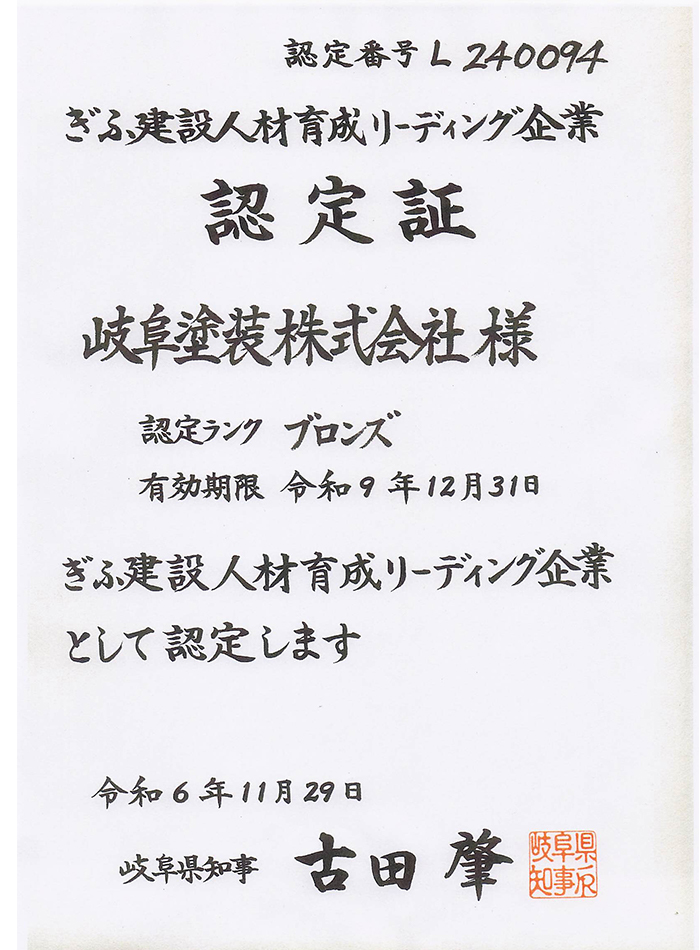 認定番号 L 240094
ぎふ建設人材育成リーディング企業
認定証
岐阜塗装株式会社 様
認定ランク ブロンズ
有効期限 令和9年12月31日
ぎふ建設人材育成リーディング企業
として認定します
令和6年11月29日
岐阜県知事 古田 肇
岐阜県
知事印